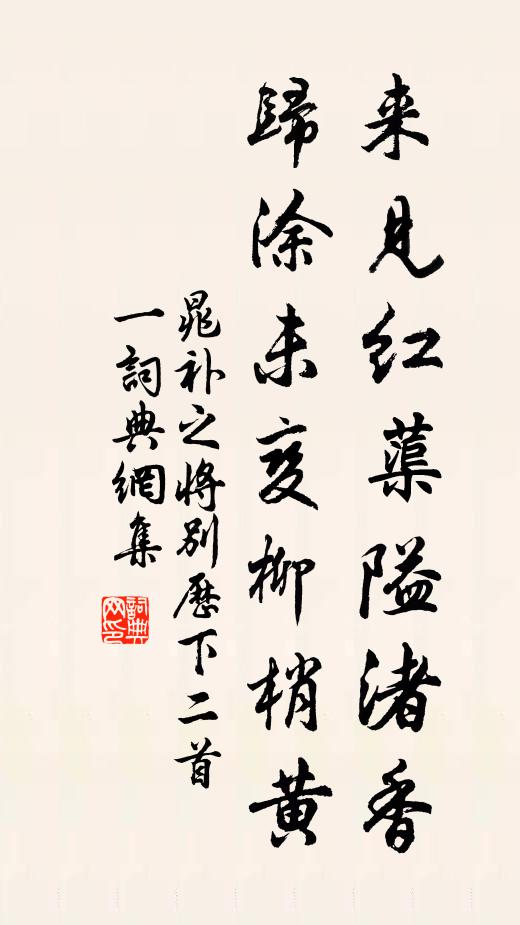 来见红蕖隘渚香
歸涂未变柳梢黄
晁补之將别歷下二首
一詞典網集
詞典网印